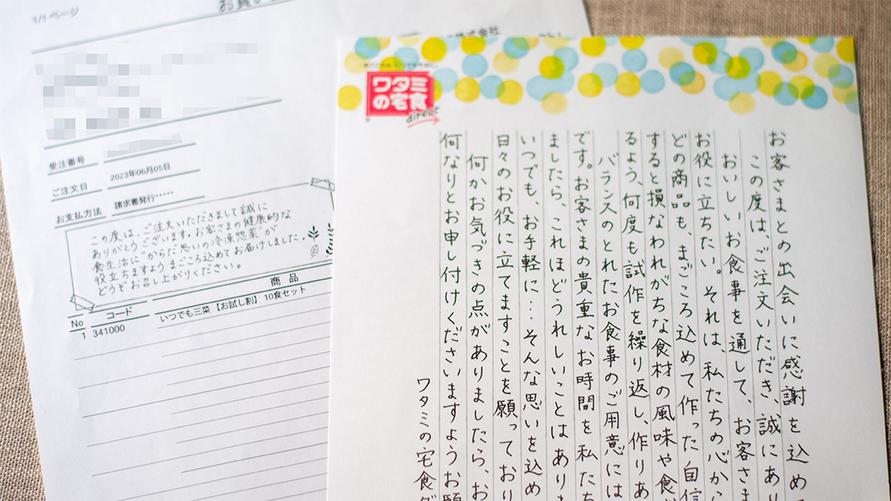 1/1 ページ
受注番号
ご注文日 2023年06月05日
お支払方法 請求書発行*****
この度は、ご注文いただきまして誠に
ありがとうございます。お客さまの健康的な
食生活に"からだ思いの冷凍惣菜"が
役立ちますようまごころ込めてお届けしました。
どうぞお召し上がりください。
No コード 商品
1 341000 いつでも三菜【お試し割】10食セット
ワタミ
の宅食
direct
お客さまとの出会いに感謝を込め
この度は、ご注文いただき、誠にあり
おいしいお食事を通して、お客さま
お役に立ちたい。それは、私たちの心から
どの商品も、まごころ込めて作った自信
すると損なわれがちな食材の風味や食
るよう、何度も試作を繰り返し、作りあ
バランスのとれたお食事のご用意には
です。お客さまの貴重なお時間を私た
ましたら、これほどうれしいことはありま
いつでも、お手軽に…そんな思いを込め
日々のお役に立てますことを願っており
何かお気づきの点がありましたら、お
何なりとお申し付けくださいますようお願
ワタミの宅食ダ